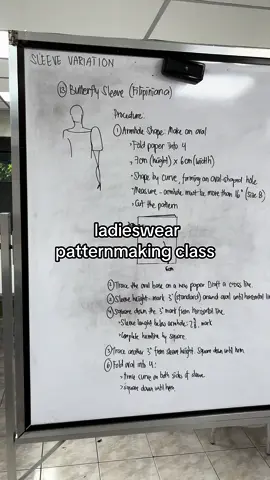 SLEEVE VARIATION
⑬ Butterfly Sleeve (Filipiniana)
Procedure:
① Armhole Shape: Make an oval
• Fold paper into 4
• 7cm (height) x 6cm (width)
• Shape by curve, forming an oval-shaped hole
• Measure - armhole must be more than 16" (size 8)
• Cut the pattern
ladieswear
patternmaking class
6cm
② Trace the oval base on a new paper. Draft a cross line.
③ Sleeve height - mark 3" (standard) around oval until horizontal line
④ Square down the 3" mark from horizontal line
• Sleeve length below armhole: mark
• Complete hemline by square
⑤ Trace another 3" from sleeve height. Square down until hem
⑥ Fold oval into 4:
• trace curve on both sides of sleeve
• square down until hem